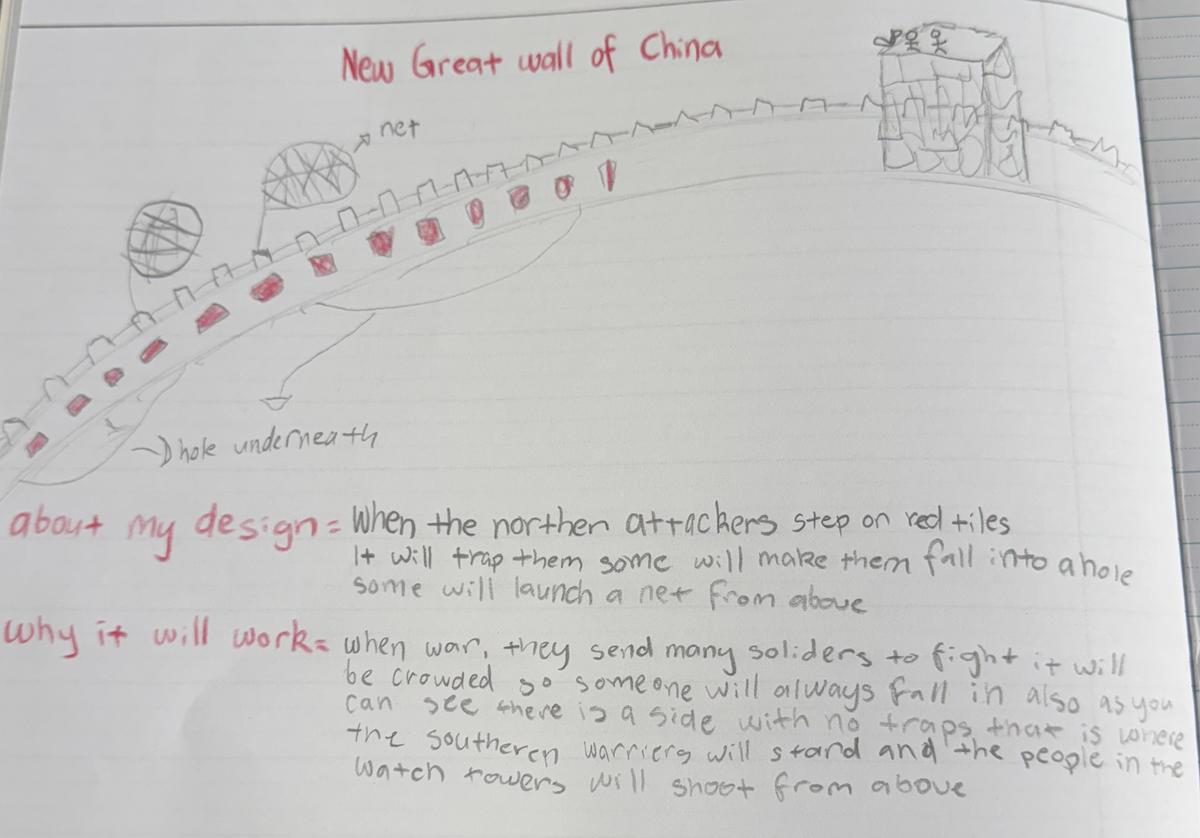 New Great wall of China
net
hole underneath
about my design = When the northen attackers step on red tiles
It will trap them some will make them fall into a hole
some will launch a net from above
why it will work = when war, they send many soliders to fight it will
be crowded so someone will always fall in also as you
can see there is a side with no traps that is where
the southeren warriers will stand and the people in the
watch towers will shoot from above